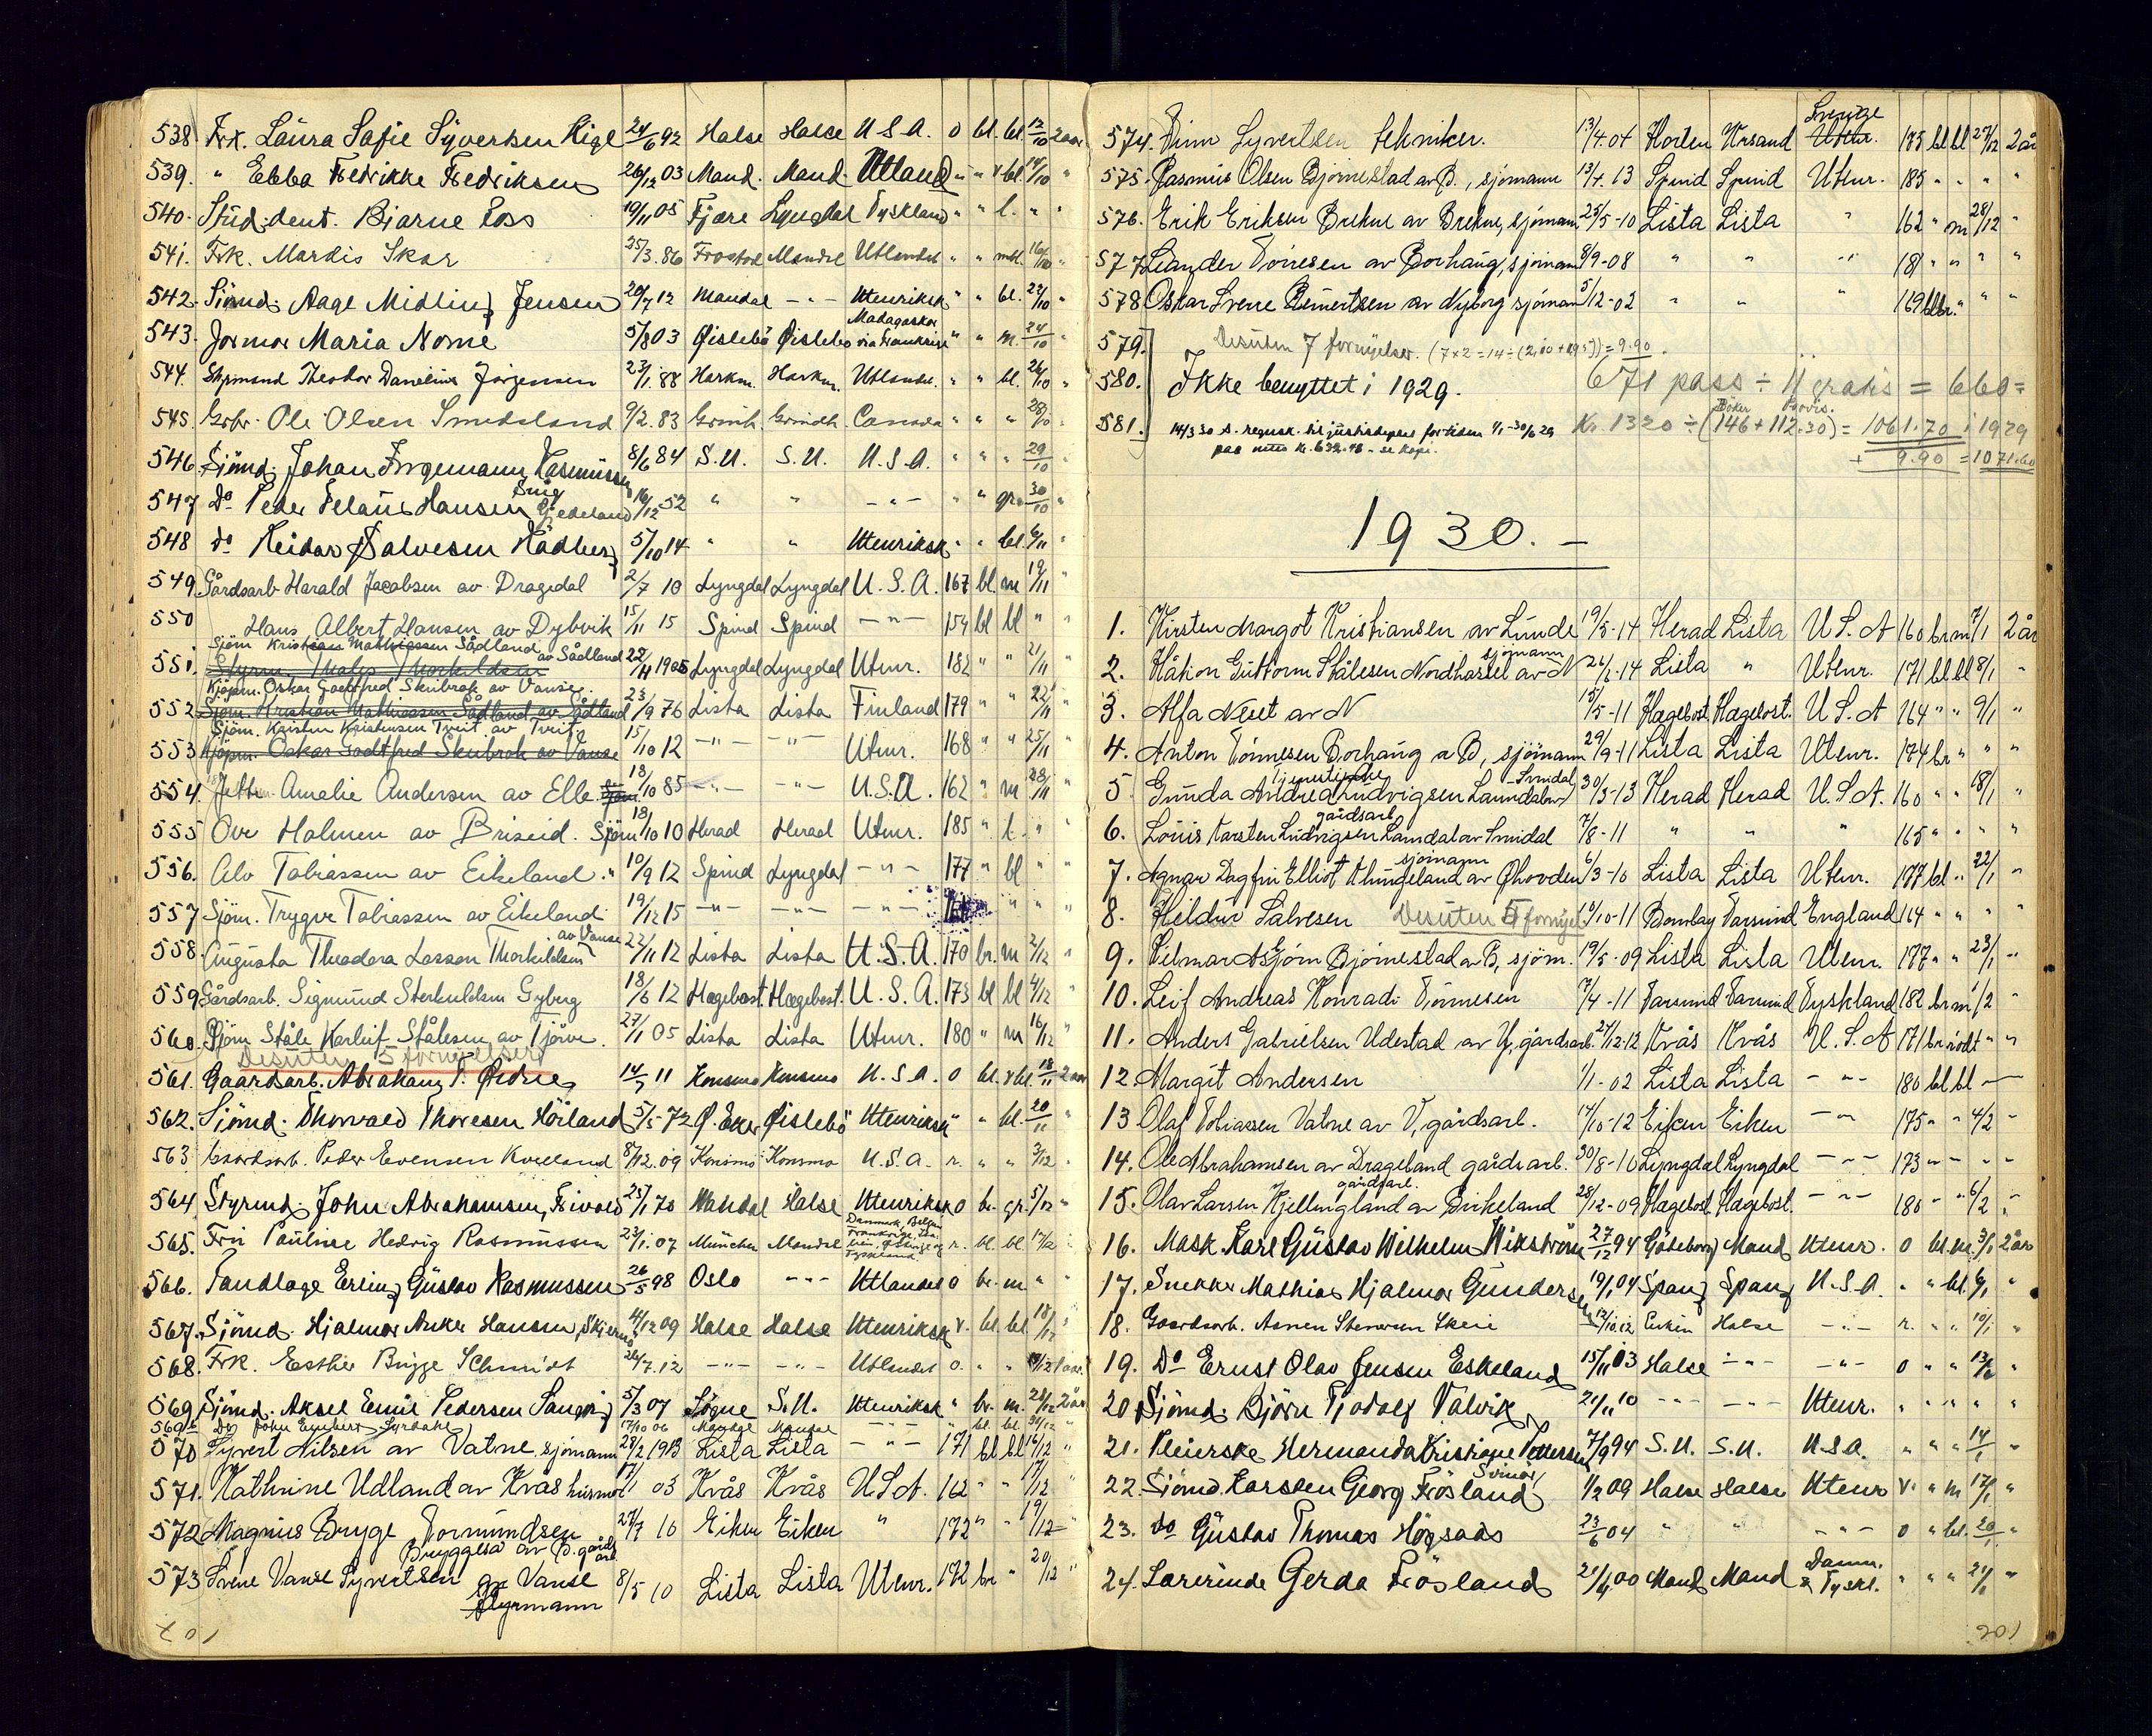 538. Frk. Laura Sofie Syvertsen Kige 24/6 92 Halse Halse U.S.A. 0 bl. bl. 12/10 2 aar
539. " Ebba Fredrikke Fredriksen 26/12 03 Mand. Mand. Utland " " " bl. 14/10 "
540. Stud. dent. Bjarne Foss 19/11 05 Fjære Lyngdal Tyskland " " l. " "
541. Frk. Mardis Skar 25/3. 86 Mandal Utlandet " " 16/10 "
542. Sjömd. Aage Midling Jensen 20/7 12 Mandal - " - Utenriksk " " bl. 22/10 "
543. Jormor Maria Nome 5/8 03 Øislebö Øislebö Madagaskar via Frankrige " " m. 24/10 "
544. Styrmand Theodor Danelius Jörgensen 23/1. 88 Harkm. Harkm. Utlandet. " " bl. 26/10 "
545. Grbr. Ole Olsen Smedsland 9/2. 83 Grindh. Grindh. Canada " " " 28/10 "
546. Sjömd. Johan Jörgemann Rasmussen 8/6 84 S.U. S.U. U.S.A. " " " 29/10 "
547 Do Peder Hansen 16/12 52 " " - " - " " gr. 30/10 "
548 do Reidar Salvesen Rådberg 5/10 14 " " Utenriksk " " bl. 6/11 "
549 Gårdsarb. Harald Jacobsen av Dragedal 2/7 10 Lyngdal Lyngdal U.S.A. 167 bl m 19/11 "
550 Hans Albert Hansen av Dybvik 15/11 15 Spind Spind - " - 154 bl bl " "
Sjöm Kristian Mathiassen Sådland av Sådland
551. Styrm. Thorkildsen 22/11 1905 Lyngdal Lyngdal Utenr. 182 " " 21/11 "
Kjöpm. Oskar Godtfred Skeibrok av Vanse.
552 Sjöm. Kristian Mathiassen Sådland av Sådland 23/9 76 Lista Lista Finland 179 " " 22/11 "
Sjöm. Kristen Kristensen Tveit av Tveit
553 Kjöpm. Oskar Godtfred Skeibrok av Vanse 15/10 12 - " - - " - Utenr. 168 " " 25/11 "
554. Amalie Andersen av Elle 13/10 85 - " - - " - U.S.A. 162 " m 28/11 "
555 Ove Holmen av Briseid. Sjöm 18/10 10 Herad Herad Utenr. 185 " l. " "
556. Alv Tobiassen av Eikeland. " 10/9 12 Spind Lyngdal - " - 177 " bl " "
557 Sjöm. Trygve Tobiassen av Eikeland 19/12 15 - " - - " - - " - " " " "
558 Augusta Theodora Larsen Thorkildsen av Vanse 22/11 12 Lista Lista U.S.A. 170 br. m 2/12 "
559 Gårdsarb. Sigmund Sterkeldsen Gyberg 18/6 12 Hægebost. Hægebost. U.S.A. 173 bl bl 4/12 "
560. Sjöm Ståle Karluf Stålesen av Tjörve. 27/1 05 Lista Lista Utenr. 180 " m 16/12 "
Desuten 5 fornyelser
561. Gaardsarb. Abraham T. Ödne 14/7 11 Konsmo Konsmo U.S.A. 0 bl. bl. 18/11 2 aar
562. Sjömd. Thorvald Thoresen Höiland 5/5 72 Ö. Eker Øislebö Utenriksk " " bl. 20/11 "
563. Gaardsarb. Peder Evensen Kvelland 8/12. 09 Konsmo Konsmo U.S.A. r. " " 3/12 "
564 Styrmd. John Abrahamsen, Frivold 25/1 70 Mandal Halse Utenriksk 0 br. gr. 5/12 "
565. Fru Pauline Hedvig Rasmussen 23/1. 07 München Mandal Danmark, Belgien Frankrige, Tyskland r. bl. bl. 17/12 "
566. Tandlæge Erling Gustav Rasmussen 26/5 98 Oslo - " - Utlandet 0 br. m. " "
567. Sjömd. Hjalmar Anker Hansen, Skjernö 14/12 09 Halse Halse Utenriksk v. bl. bl. 18/12 "
568. Frk. Esther Brygge Schmidt 24/7. 12 - " - - " - Utlandet 0. " " 19/12 1 aar.
569 Sjömd. Aksel Emil Pedersen 5/3 07 Sögne S.U. Utenriksk " br. m. 21/12 2 år
569b Do John Engbert 17/10 06 Mandal Mandal - " - " bl. bl. "
570 Syvert Nilsen av Vatne sjömann 28/2 1913 Lista Lista - " - 171 bl bl 16/12 "
571. Kathrine Udland av Krås husmor 17/1 03 Krås Krås U.S.A. 162 " " 17/12 "
572 Magnus Brygge Tormundsen Bryggeså av B. gårdsarb. 27/7 10 Eiken Eiken " 172 " " 19/12 "
573 Svene Vanse Syvertsen av Vanse styrmann 8/5 10 Lista Lista Utenr. 172 br " 20/12 "
574. Finn Syvertsen tekniker. 13/4. 04 Horten Krsand Utenr. Sverige 183 bl bl 27/12 2 år
575. Rasmus Olsen Björnestad av B., sjömann 13/4. 13 Spind Spind Utenr. 185 " " " "
576. Erik Eriksen Brekne av Brekne, sjömann 25/5-10 Lista Lista " 162 " m 28/12 "
577 Leander Tönnesen av Borhaug, sjömann 8/9-08 " " " 181 " " " "
578 Oskar Sverre Reinertsen av Nyborg sjömann 5/12-02 " " " 169 bl br. " "
579. Desuten 7 fornyelser. (7x2=14÷(2,00+ )) = 9.90.
580. Ikke benyttet i 1929. 671 pass ÷ 11 gratis = 660=
581. 14/3 30 s. regnsk. til justisdepart for tiden 1/1-30/6 29 Kr. 1320 ÷ (Böker 146 + Provis. 112.30) = 1061.70 i 1929
paa netto kr. 632.48 - se kopi. + 9.90 = 1071.60
1930. -
1. Kirsten Margot Kristiansen av Lunde 19/5-14 Herad Lista U.S.A 160 br m 7/1 2 år
2. Håkon Guttorm Stålesen Nordhassel av N sjömann 26/2-14 Lista " Utenr. 171 bl bl 8/1 "
3. Alfa Neset av N 15/5-11 Hægebost Hægebost. U.S.A 164 " " 9/1 "
4. Anton Tönnesen Borhaug a B, sjömann 29/9-11 Lista Lista Utenr. 174 br " " "
5 Gunda Andrea Ludvigsen Laundal av Smidal 30/3-13 Herad Herad U.S.A. 160 " " 18/1 "
6. Louis Karsten Ludvigsen Lamdal av Smidal gårdsarb 7/8-11 " " " 165 " " " "
7. Agnar Dagfin Elliot Klungeland av Øhovden sjömann 6/3-10 Lista Lista Utenr. 177 bl " 22/1 "
8. Hildur Salvesen Desuten 5 fornyel 10/10-11 Bombay Farsund England 164 " " " "
9. Vilmar Asbjörn Björnestad av B, sjöm. 19/5-09 Lista Lista Utenr. 177 " " 23/1 "
10. Leif Andreas Konradi Tönnesen 7/4-11 Farsund Farsund Tyskland 182 br m 1/2 "
11. Anders Gabrielsen Udestad av U, gårdsarb. 27/12-12 Krås Krås U.S.A 171 br rödt " "
12. Margit Andersen 1/1-02 Lista Lista - " - 180 bl bl -
13 Olaf Tobiassen Vatne av V, gårdsarb. 14/10-12 Eiken Eiken - " 175 " " 4/2 "
14. Ole Abrahamsen av Drageland gårdsarb. 30/8-10 Lyngdal Lyngdal - " - 173 " " " "
15. Olav Larsen Kjellingland av Birkeland gårdsarb. 28/12-09 Hægebost Hægebost. - " - 180 " " 6/2 "
16. Mask. Karl Gustav Wilhelm Wikström 27/12 94 Göteborg Mand. Utenr. 0 bl. m. 3/1 2 år
17. Snekker Mathias Hjalmar Gundersen 19/1 04 Spang. Spang. U.S.A. " " bl. 9/1 "
18. Gaardsarb. Asmen Stenersen Skeie 12/10.12 Eiken Halse - " - r. " " 10/1 "
19. Do Ernst Olav Jensen Eskeland 15/11 03 Halse - " - - " - 0 " " 13/1 "
20 Sjömd. Björn Tjodolf Valvik 21/11 10 - " - - " - Utenr. " " " " "
21. Meierske Hermanda Kristiane 7/9 94 S.U. S.U. U.S.A. " " " 14/1 "
22. Sjömd. Karsten Georg Frösland Svinör 1/2 09 Halse Halse Utenr v. " m 17/1 "
23. do Gustav Thomas Högsaas 23/6 04 " " - " - 0 " bl. 20/1 "
24. Lærerinde Gerda Frösland 21/4 00 Mand. Mand Danm. & Tyskl. " " " 21/1 "